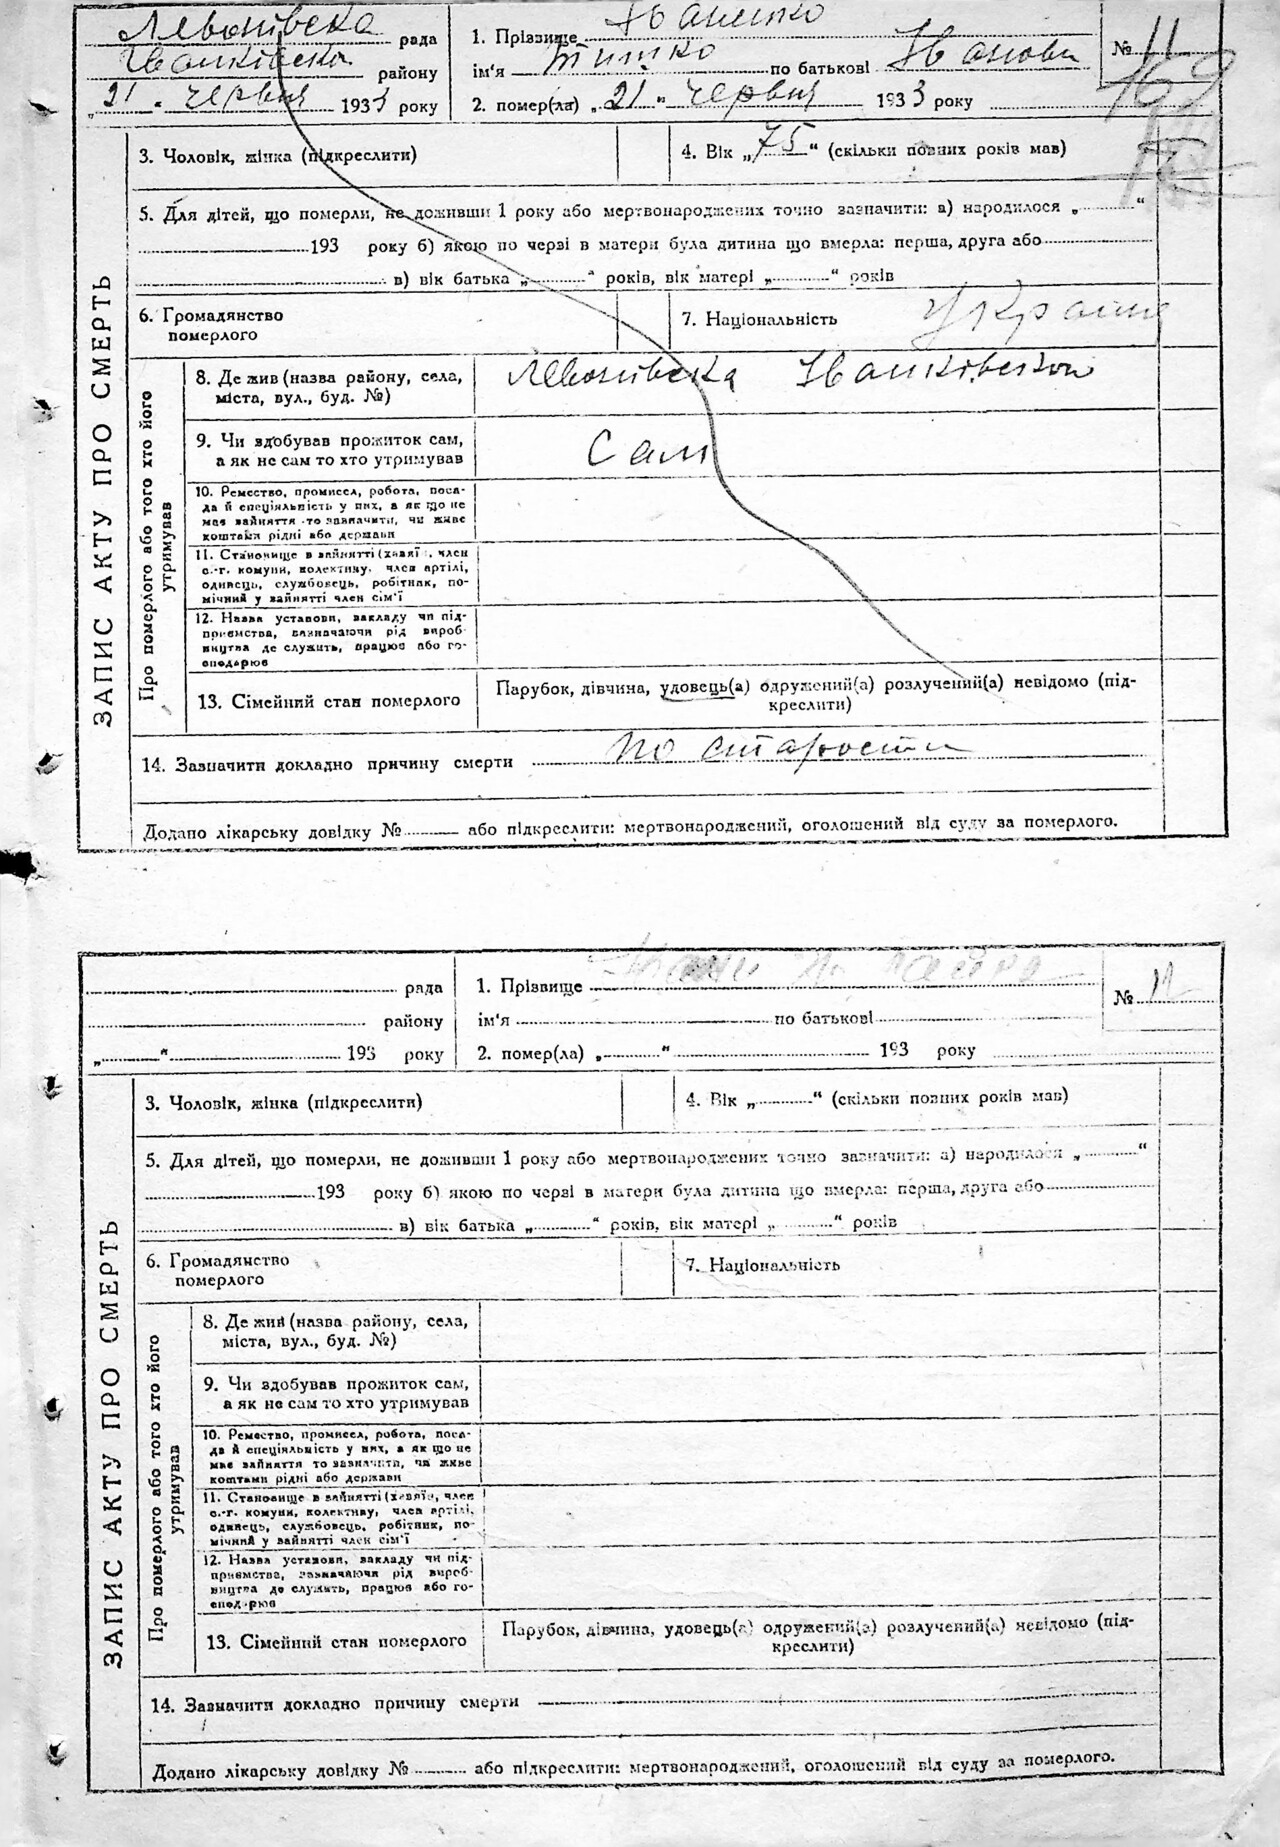 Левонівска рада
Іванківска району
„21“ червня 1933 року
1. Прізвище Іваненко
ім'я Тимко по батькові Іванови
2. помер(ла) „21“ червня 1933 року
№ 11
169
3. Чоловік, жінка (підкреслити)
4. Вік „75“ (скільки повних років мав)
5. Для дітей, що померли, не доживши 1 року або мертвонароджених точно зазначити: а) народилося „ “
193 року б) якою по черзі в матери була дитина що вмерла: перша, друга або
в) вік батька „ “ років, вік матері „ “ років
6. Громадянство
померлого
7. Національність Украін
ЗАПИС АКТУ ПРО СМЕРТЬ
Про померлого або того хто його
утримував
8. Де жив (назва району, села,
міста, вул., буд. №)
Левонівска Іванківскою
9. Чи здобував прожиток сам,
а як не сам то хто утримував
Сам
10. Ремество, промисел, робота, поса-
да й спеціяльність у них, а як що не
має зайняття то зазначити, чи живе
коштами рідні або держави
11. Становище в зайнятті (хазяї , член
с.-г. комуни, колективу, член артілі,
одинець, службовець, робітник, по-
мічний у зайнятті член сім'ї
12. Назва установи, закладу чи під-
приємства, зазначаючи рід вироб-
ництва де служить, працює або го-
сподарює
13. Сімейний стан померлого
Парубок, дівчина, удовець(а) одружений(а) розлучений(а) невідомо (під-
креслити)
14. Зазначити докладно причину смерти по старости
Додано лікарську довідку № або підкреслити: мертвонароджений, оголошений від суду за померлого.
рада
району
„ “ 193 року
1. Прізвище
ім'я по батькові
2. помер(ла) „ “ 193 року
№ 12
3. Чоловік, жінка (підкреслити)
4. Вік „ “ (скільки повних років мав)
5. Для дітей, що померли, не доживши 1 року або мертвонароджених точно зазначити: а) народилося „ “
193 року б) якою по черзі в матери була дитина що вмерла: перша, друга або
в) вік батька „ “ років, вік матері „ “ років
6. Громадянство
померлого
7. Національність
ЗАПИС АКТУ ПРО СМЕРТЬ
Про померлого або того хто його
утримував
8. Де жив (назва району, села,
міста, вул., буд. №)
9. Чи здобував прожиток сам,
а як не сам то хто утримував
10. Ремество, промисел, робота, поса-
да й спеціяльність у них, а як що не
має зайняття то зазначити, чи живе
коштами рідні або держави
11. Становище в зайнятті (хазяїн, член
с.-г. комуни, колективу, член артілі,
одинець, службовець, робітник, по-
мічний у зайнятті член сім'ї
12. Назва установи, закладу чи під-
приємства, зазначаючи рід вироб-
ництва де служить, працює або го-
сподарює
13. Сімейний стан померлого
Парубок, дівчина, удовець(а) одружений(а) розлучений(а) невідомо (під-
креслити)
14. Зазначити докладно причину смерти
Додано лікарську довідку № або підкреслити: мертвонароджений, оголошений від суду за померлого.